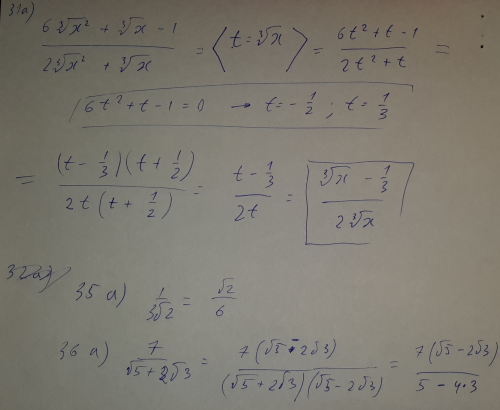 31a)
(6∛x² + ∛x - 1)/(2∛x² + ∛x) = ⟨t = ∛x⟩ = (6t² + t - 1)/(2t² + t) =
6t² + t - 1 = 0 → t = -1/2 ; t = 1/3
= ((t - 1/3)(t + 1/2))/(2t(t + 1/2)) = (t - 1/3)/(2t) = (∛x - 1/3)/(2∛x)
32a)
35 a) 1/(3√2) = √2/6
36 a) 7/(√5 + 2√3) = 7(√5 - 2√3)/((√5 + 2√3)(√5 - 2√3)) = 7(√5 - 2√3)/(5 - 4·3)